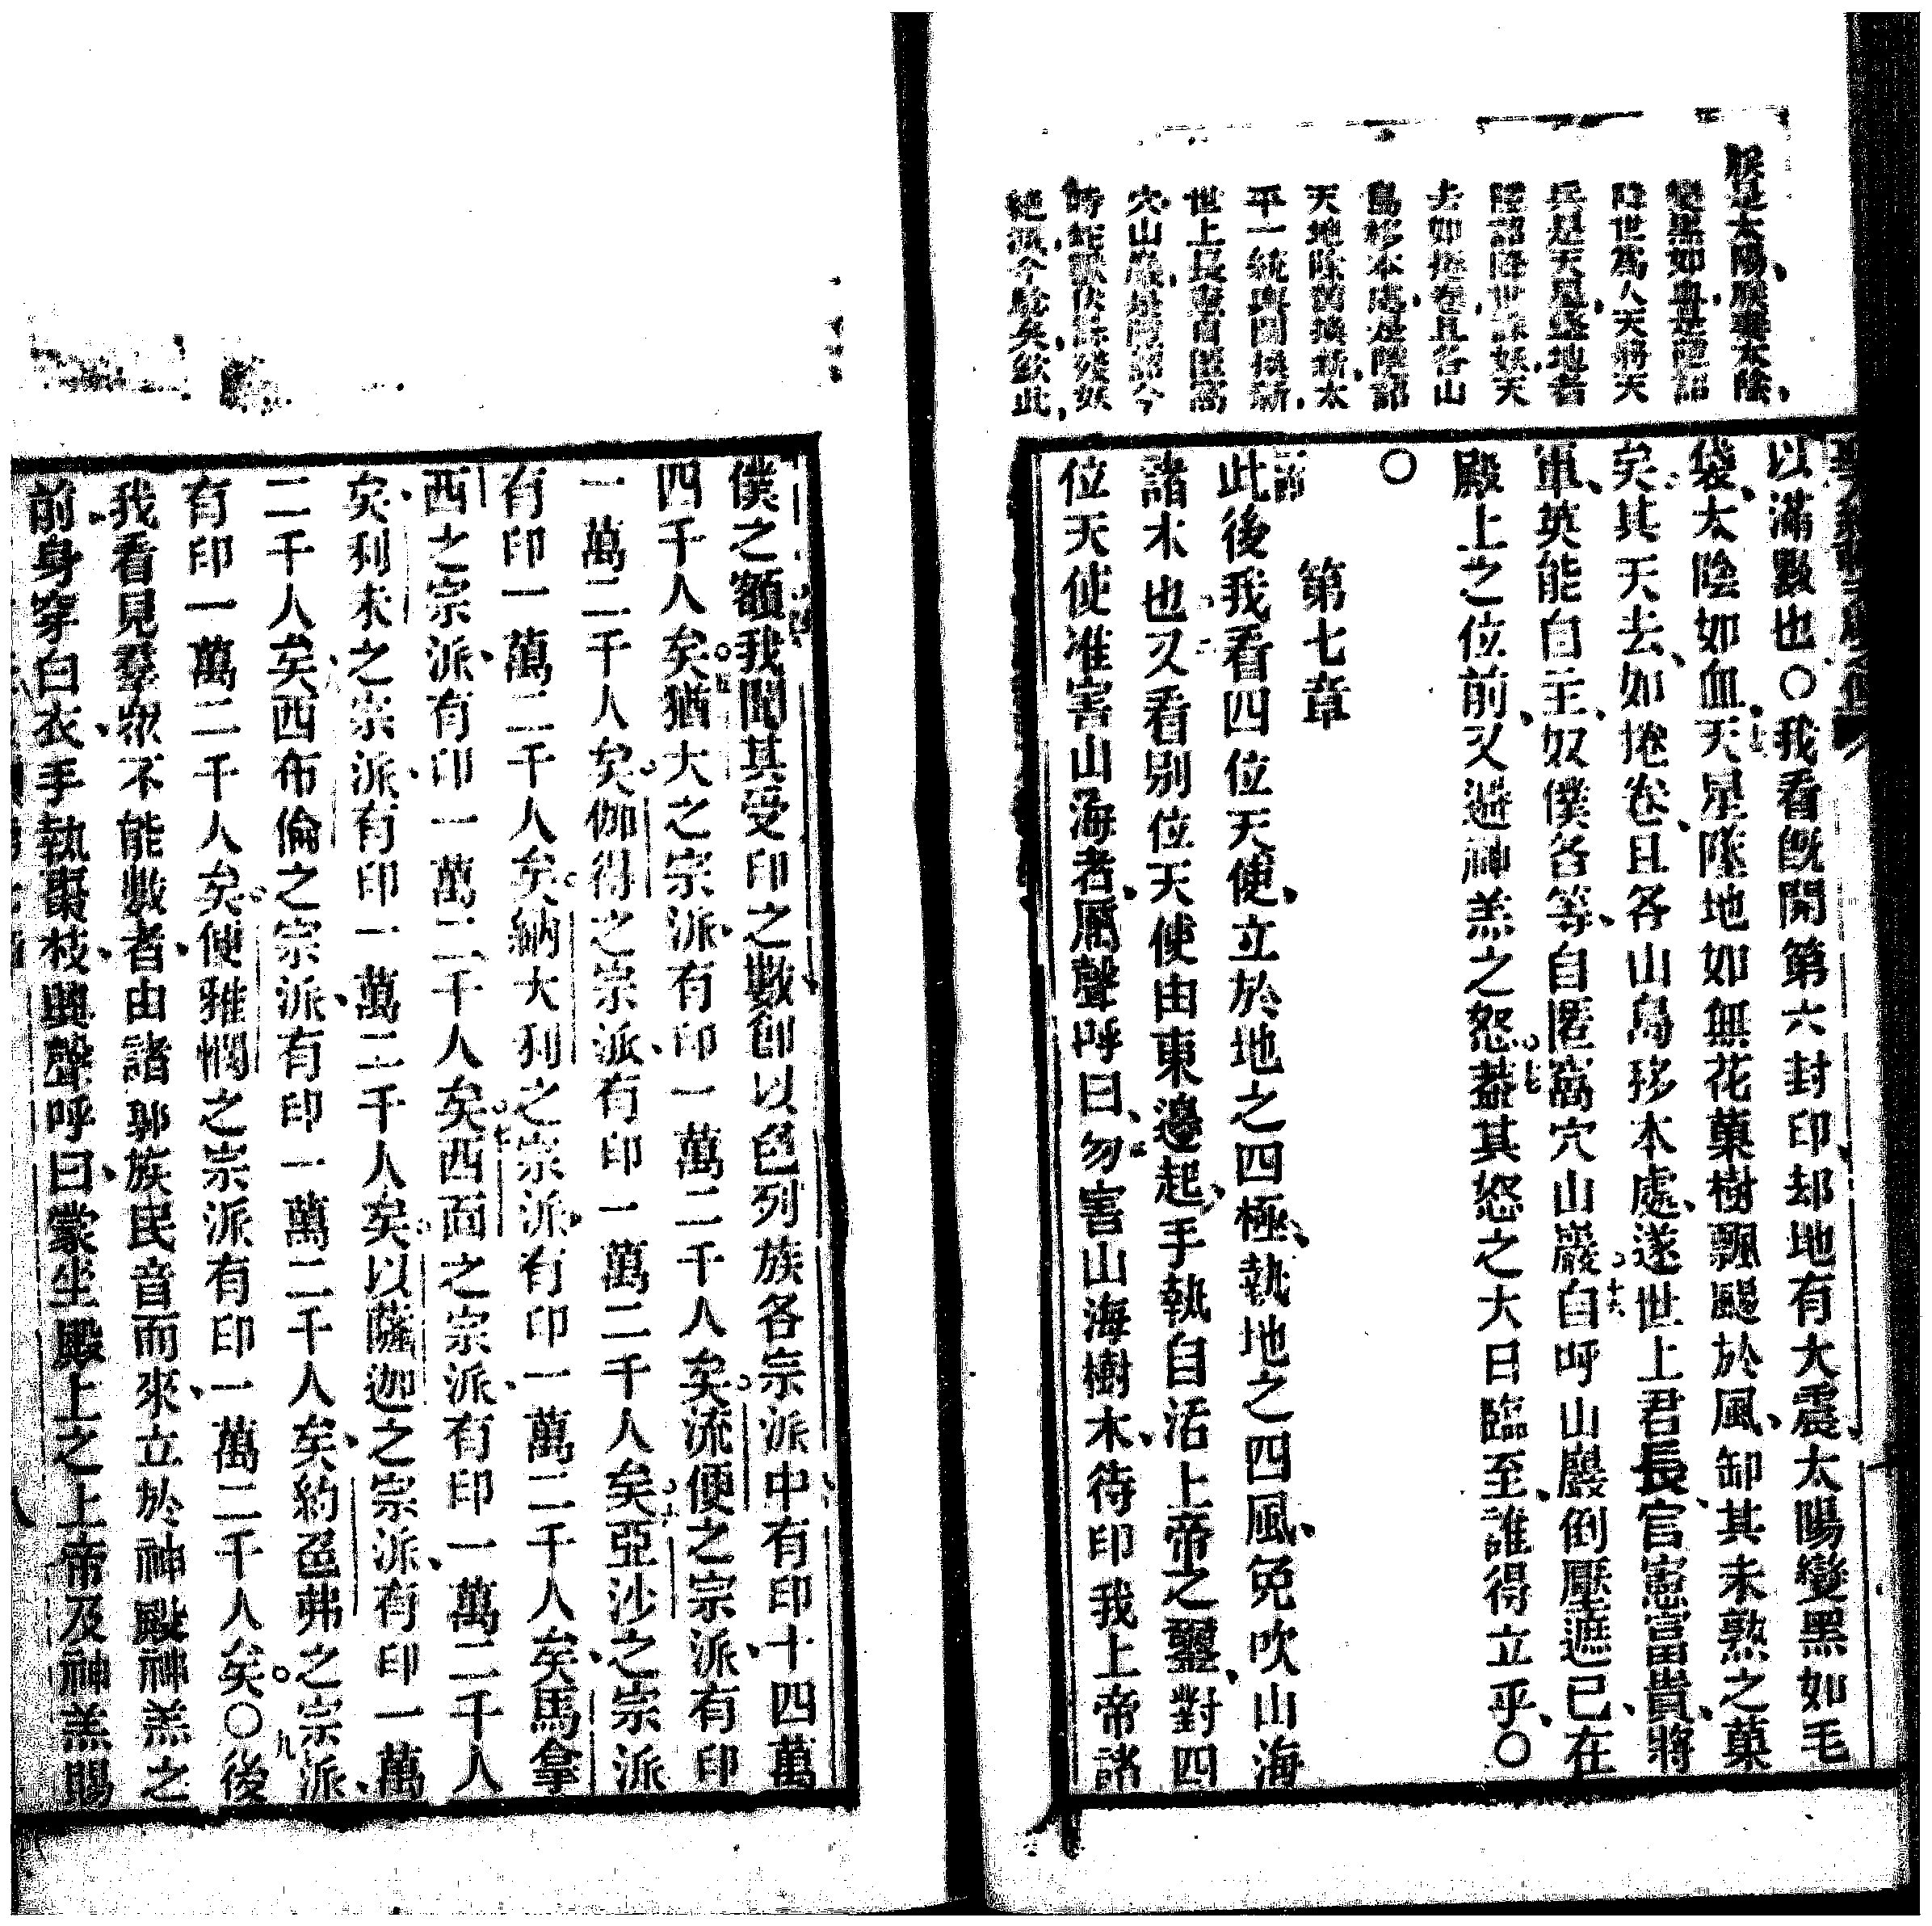 朕是太陽朕妻太陰
變黑如血是隱詔
降世爲人天將天
兵是天星墜地者
隱詔降世誅妖天
去如捲卷且各山
島移本處是隱詔
天地除舊換新太
平一統江山換新
世上長官自匿窩
穴山巖是隱詔今
時蛇獸伏誅殘妖
絕滅今驗矣欽此
以滿數也○我看旣開第六封印却地有大震太陽變黑如毛
袋太陰如血天星墜地如無花菓樹飄颺於風卸其未熟之菓
矣其天去如捲卷且各山島移本處遂世上君長官憲富貴將
軍英能自主奴僕各等自匿窩穴山巖自呼山巖倒壓遮已在
殿上之位前又避神羔之怒蓋其怒之大日臨至誰得立乎○
○
第七章
此後我看四位天使立於地之四極執地之四風免吹山海
諸木也又看別位天使由東邊起手執自活上帝之璽對四
位天使准害山海者厲聲呼曰勿害山海樹木待印我上帝諸
僕之額我聞其受印之數卽以色列族各宗派中有印十四萬
四千人矣猶大之宗派有印一萬二千人矣流便之宗派有印
一萬二千人矣伽得之宗派有印一萬二千人矣亞沙之宗派
有印一萬二千人矣納大利之宗派有印一萬二千人矣馬拿
西之宗派有印一萬二千人矣西面之宗派有印一萬二千人
矣利未之宗派有印一萬二千人矣以薩迦之宗派有印一萬
二千人矣西布倫之宗派有印一萬二千人矣約色弗之宗派
有印一萬二千人矣便雅憫之宗派有印一萬二千人矣○後
我看見羣衆不能數者由諸邦族民音而來立於神殿神羔之
前身穿白衣手執棗枝興聲呼曰蒙坐殿上之上帝及神羔賜